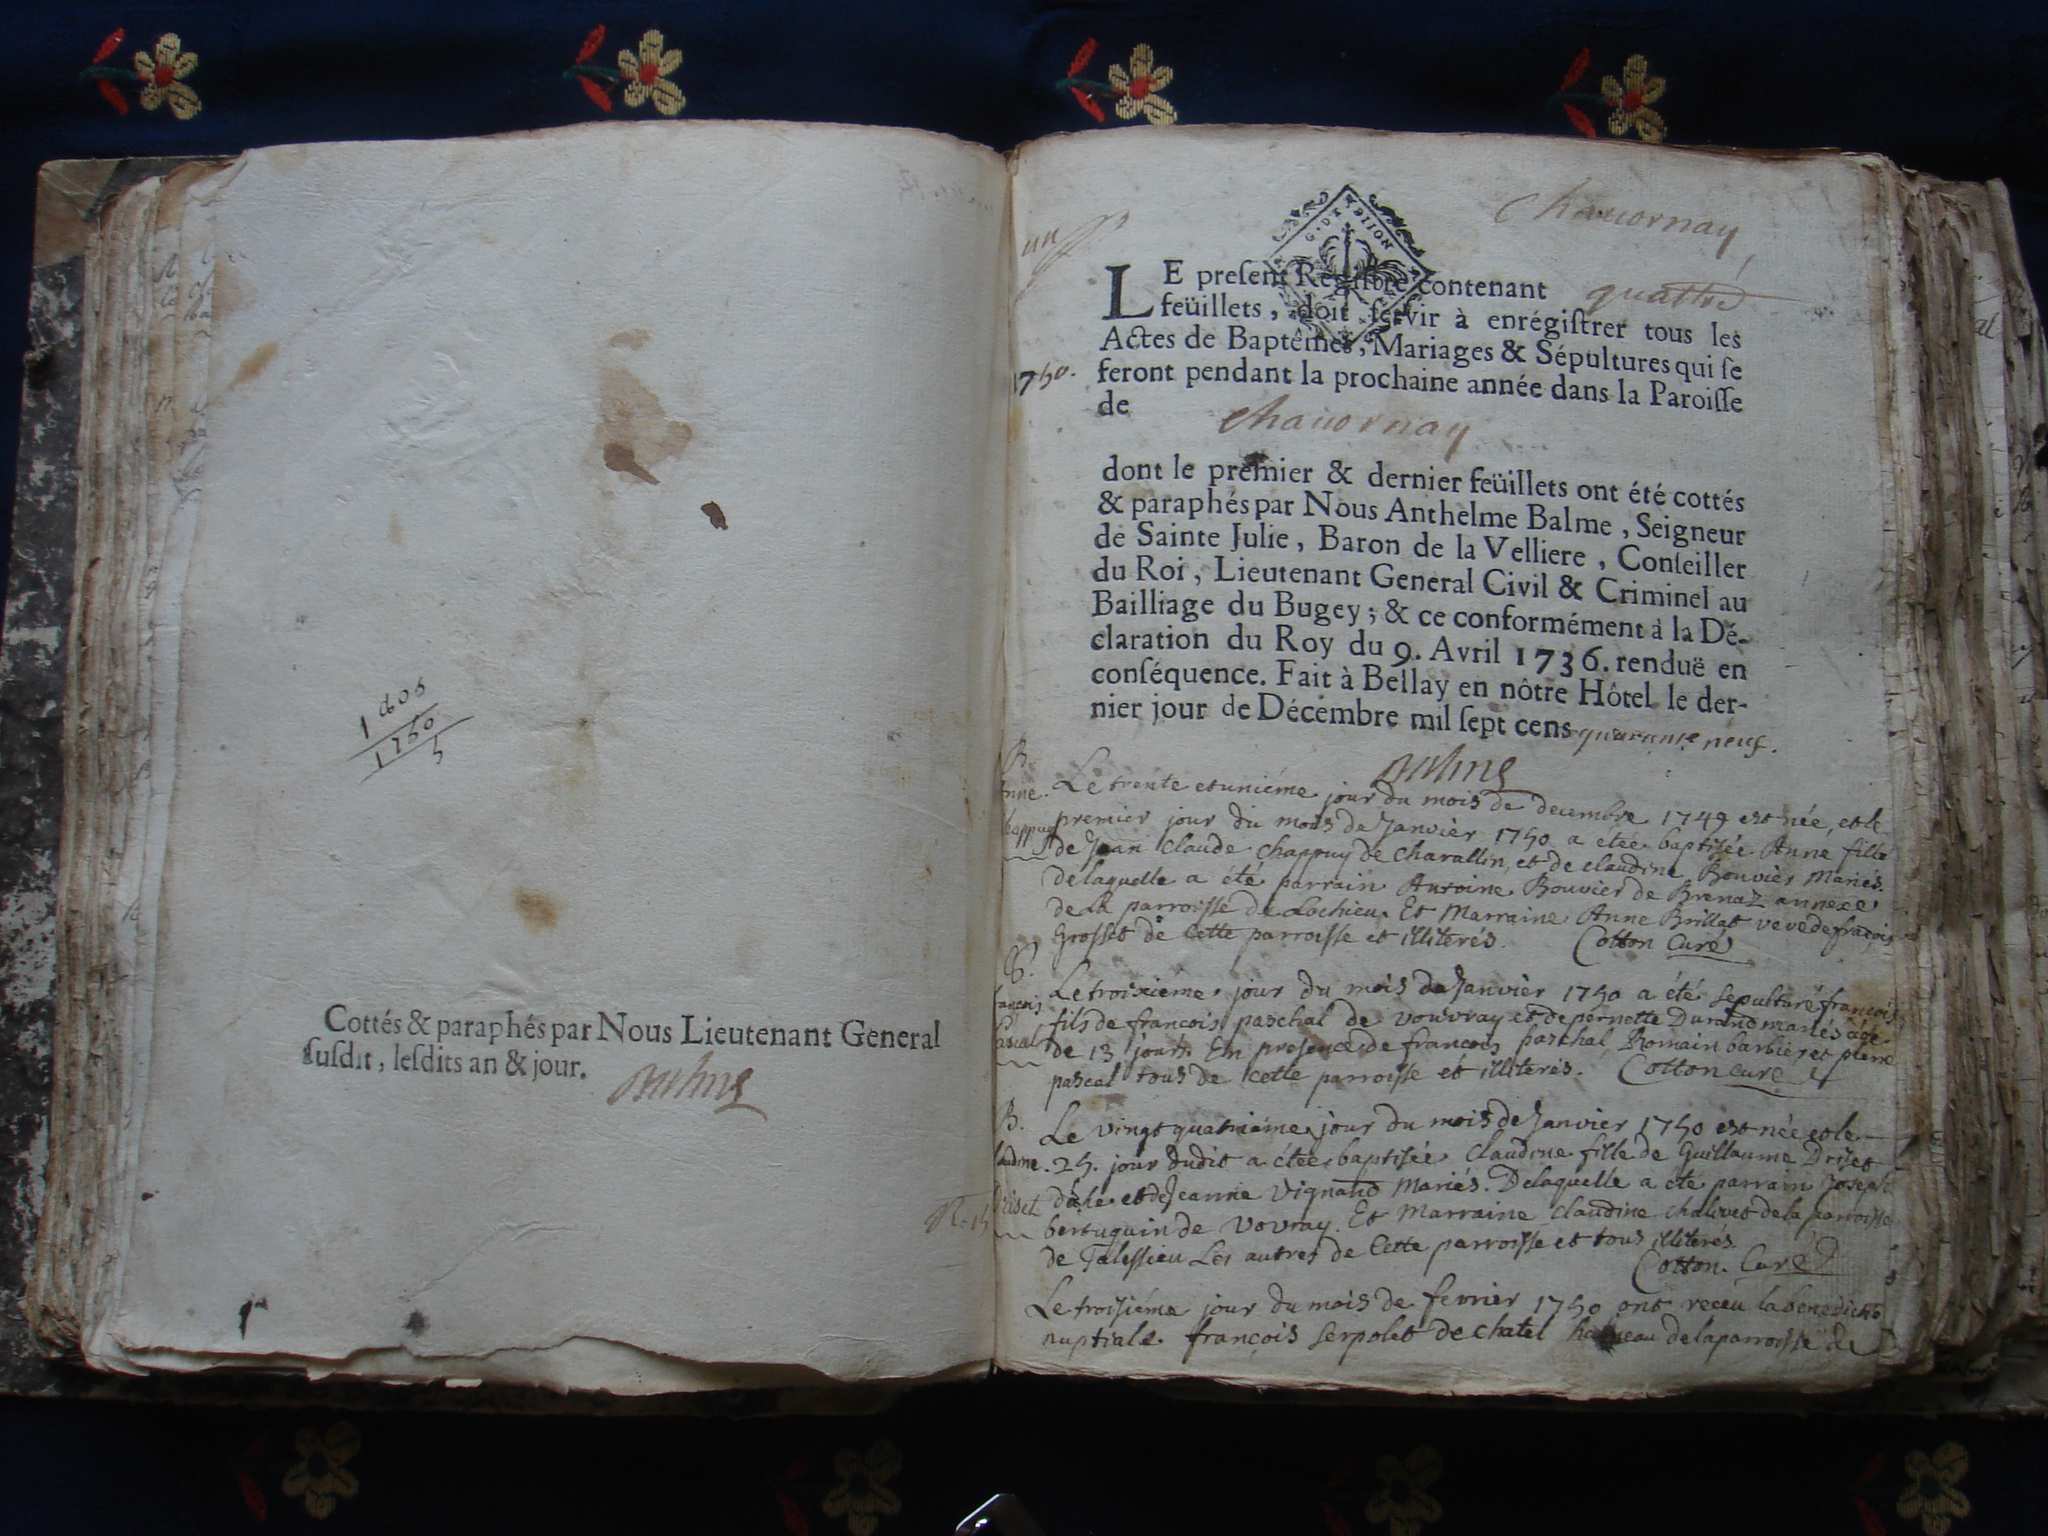 1750
5
Cottés & paraphés par Nous Lieutenant General
susdit, lesdits an & jour.
Balme
Chavornay
un
G. DE DIION
LE present Registre contenant quattre
feüillets, doit servir à enrégistrer tous les
Actes de Baptêmes, Mariages & Sépultures qui se
1750. feront pendant la prochaine année dans la Paroisse
de Chavornay
dont le premier & dernier feüillets ont été cottés
& paraphés par Nous Anthelme Balme, Seigneur
de Sainte Julie, Baron de la Velliere, Conseiller
du Roi, Lieutenant General Civil & Criminel au
Bailliage du Bugey; & ce conformément à la Dé-
claration du Roy du 9. Avril 1736. renduë en
conséquence. Fait à Bellay en nôtre Hôtel le der-
nier jour de Décembre mil sept cens quarante neuf.
Balme
B.
Anne Le trente et uniéme jour du mois de decembre 1749 est née, et le
chappuy premier jour du mois de Janvier 1750 a étée baptisée Anne fille
de Jean Claude Chappuy de Charallin, et de claudine Bouvier Mariés.
de laquelle a été parrain Antoine Bouvier de Brenaz annexe
de la parroisse de Lochieu Et Marraine Anne Brillat veve de françois
Grosset de Cette parroisse et illiterés. Cotton Curé
S.
francois Le troisiéme jour du mois de Janvier 1750 a été sepulturé francois
Pascal fils de francois paschal de vouvray et de pernette Durand mariés agé
de 13 jours En presence de francois paschal, Romain barbier, et pierre
pascal tous de cette parroisse et illiterés. Cotton curé
B. Le vingt quatriéme jour du mois de Janvier 1750 est née et le
Claudine 25. jour dudit a étée baptisée Claudine fille de Guillaume Driset
Driset et de Jeanne Vignand Mariés. De laquelle a été parrain Joseph
bertuquin de Vovray. Et Marraine Claudine chalivet de la parroisse
de Talissieu Les autres de Cette parroisse et tous illiterés.
Cotton Curé
Le troisiéme jour du mois de fevrier 1750 ont receu la benedictio
nuptiale françois serpolet de chatel hameau de la parroisse de